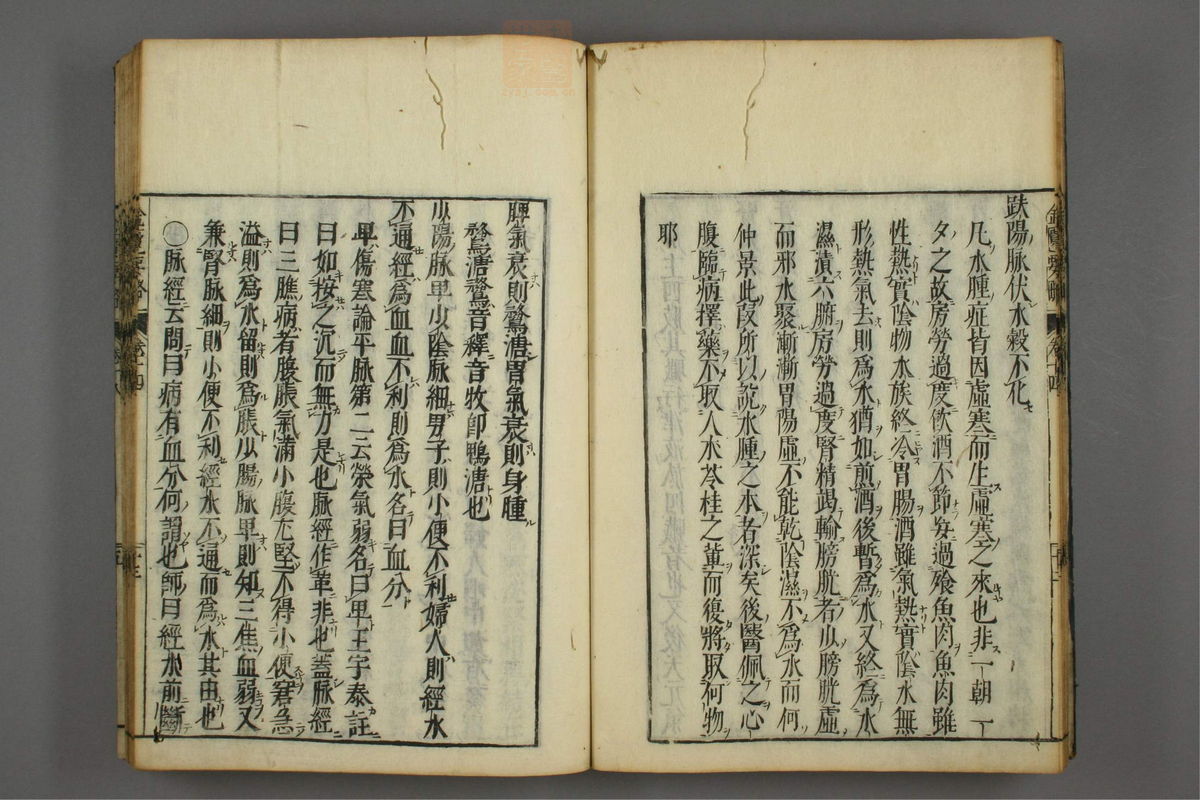 趺陽脉伏水穀不化
凡水腫症皆因虛寒而生虛寒之來也非一朝一
夕之故房勞過度飲酒不節妄過飧魚肉魚肉雖
性熱實陰物水族終冷胃腸酒雖氣熱實陰水無
形熱氣去則爲水猶如煎酒後暫爲水又終爲水
濕漬六腑房勞過度腎精竭輸膀胱者以膀胱虛
而邪水聚漸漸胃陽虛不能乾陰濕不爲水而何
仲景此段所以說水腫之本者深矣後醫佩之心
腹臨病擇藥不取人朮苓桂之輩而復將取何物
耶
脾氣衰則鶩溏胃氣衰則身腫
鶩溏鶩音釋音牧即鴨溏也
少陽脉卑少陰脉細男子則小便不利婦人則經水
不通經爲血血不利則爲水名曰血分
卑傷寒論平脉第二云榮氣弱名曰卑王宇泰註
曰如按之沉而無力是也脉經作革非也蓋脉經
曰三膲病者腹脹氣滿小腹尤堅不得小便窘急
溢則爲水留則爲脹少腸脉卑則知三焦血弱又
兼腎脉細則小便不利經水不通而爲水其由也
○脉經云問曰病有血分何謂也師曰經水前斷